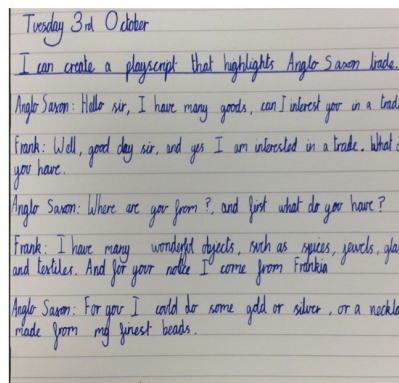 Tuesday 3rd October
I can create a playscript that highlights Anglo Saxon trade.
Anglo Saxon: Hello sir, I have many goods, can I interest you in a
Frank: Well, good day sir, and yes I am interested in a trade. What
you have.
Anglo Saxon: Where are you from?, and first what do you have?
Frank: I have many wonderful objects, such as spices, jewels,
and textiles. And for your notice I come from Frankia
Anglo Saxon: For you I could do some gold or silver, or a
made from my finest beads.